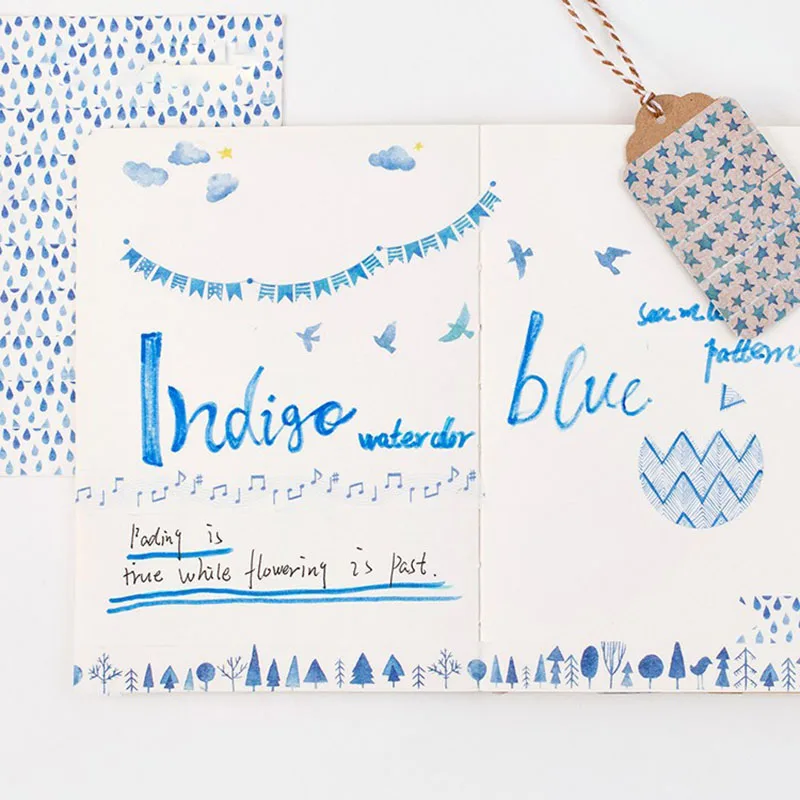 Indigo watercolor
Fading is
true while flowering is past.
blue
patterns